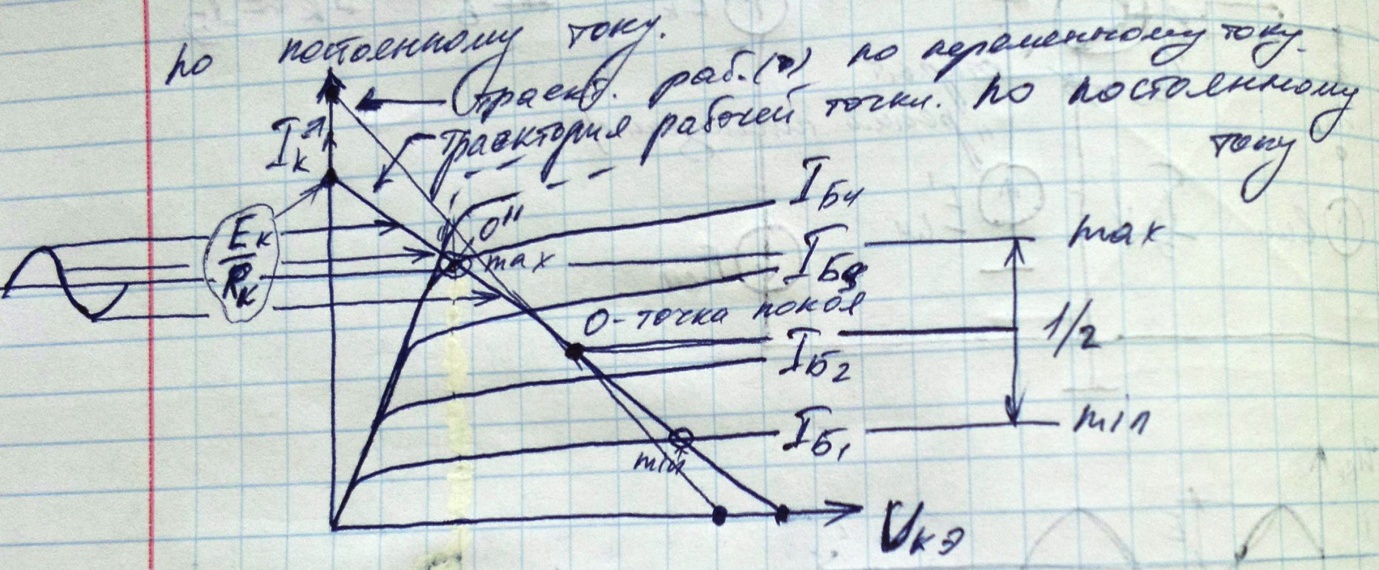 по постоенному току.
траект. раб.(•) по переменному току.
траектория рабочей точки. по постоянному
току
Iк
Iб4
Eк
Rк
0"
max
Iб3
max
0-точка покоя
1/2
Iб2
Iб1
min
min
Uкэ